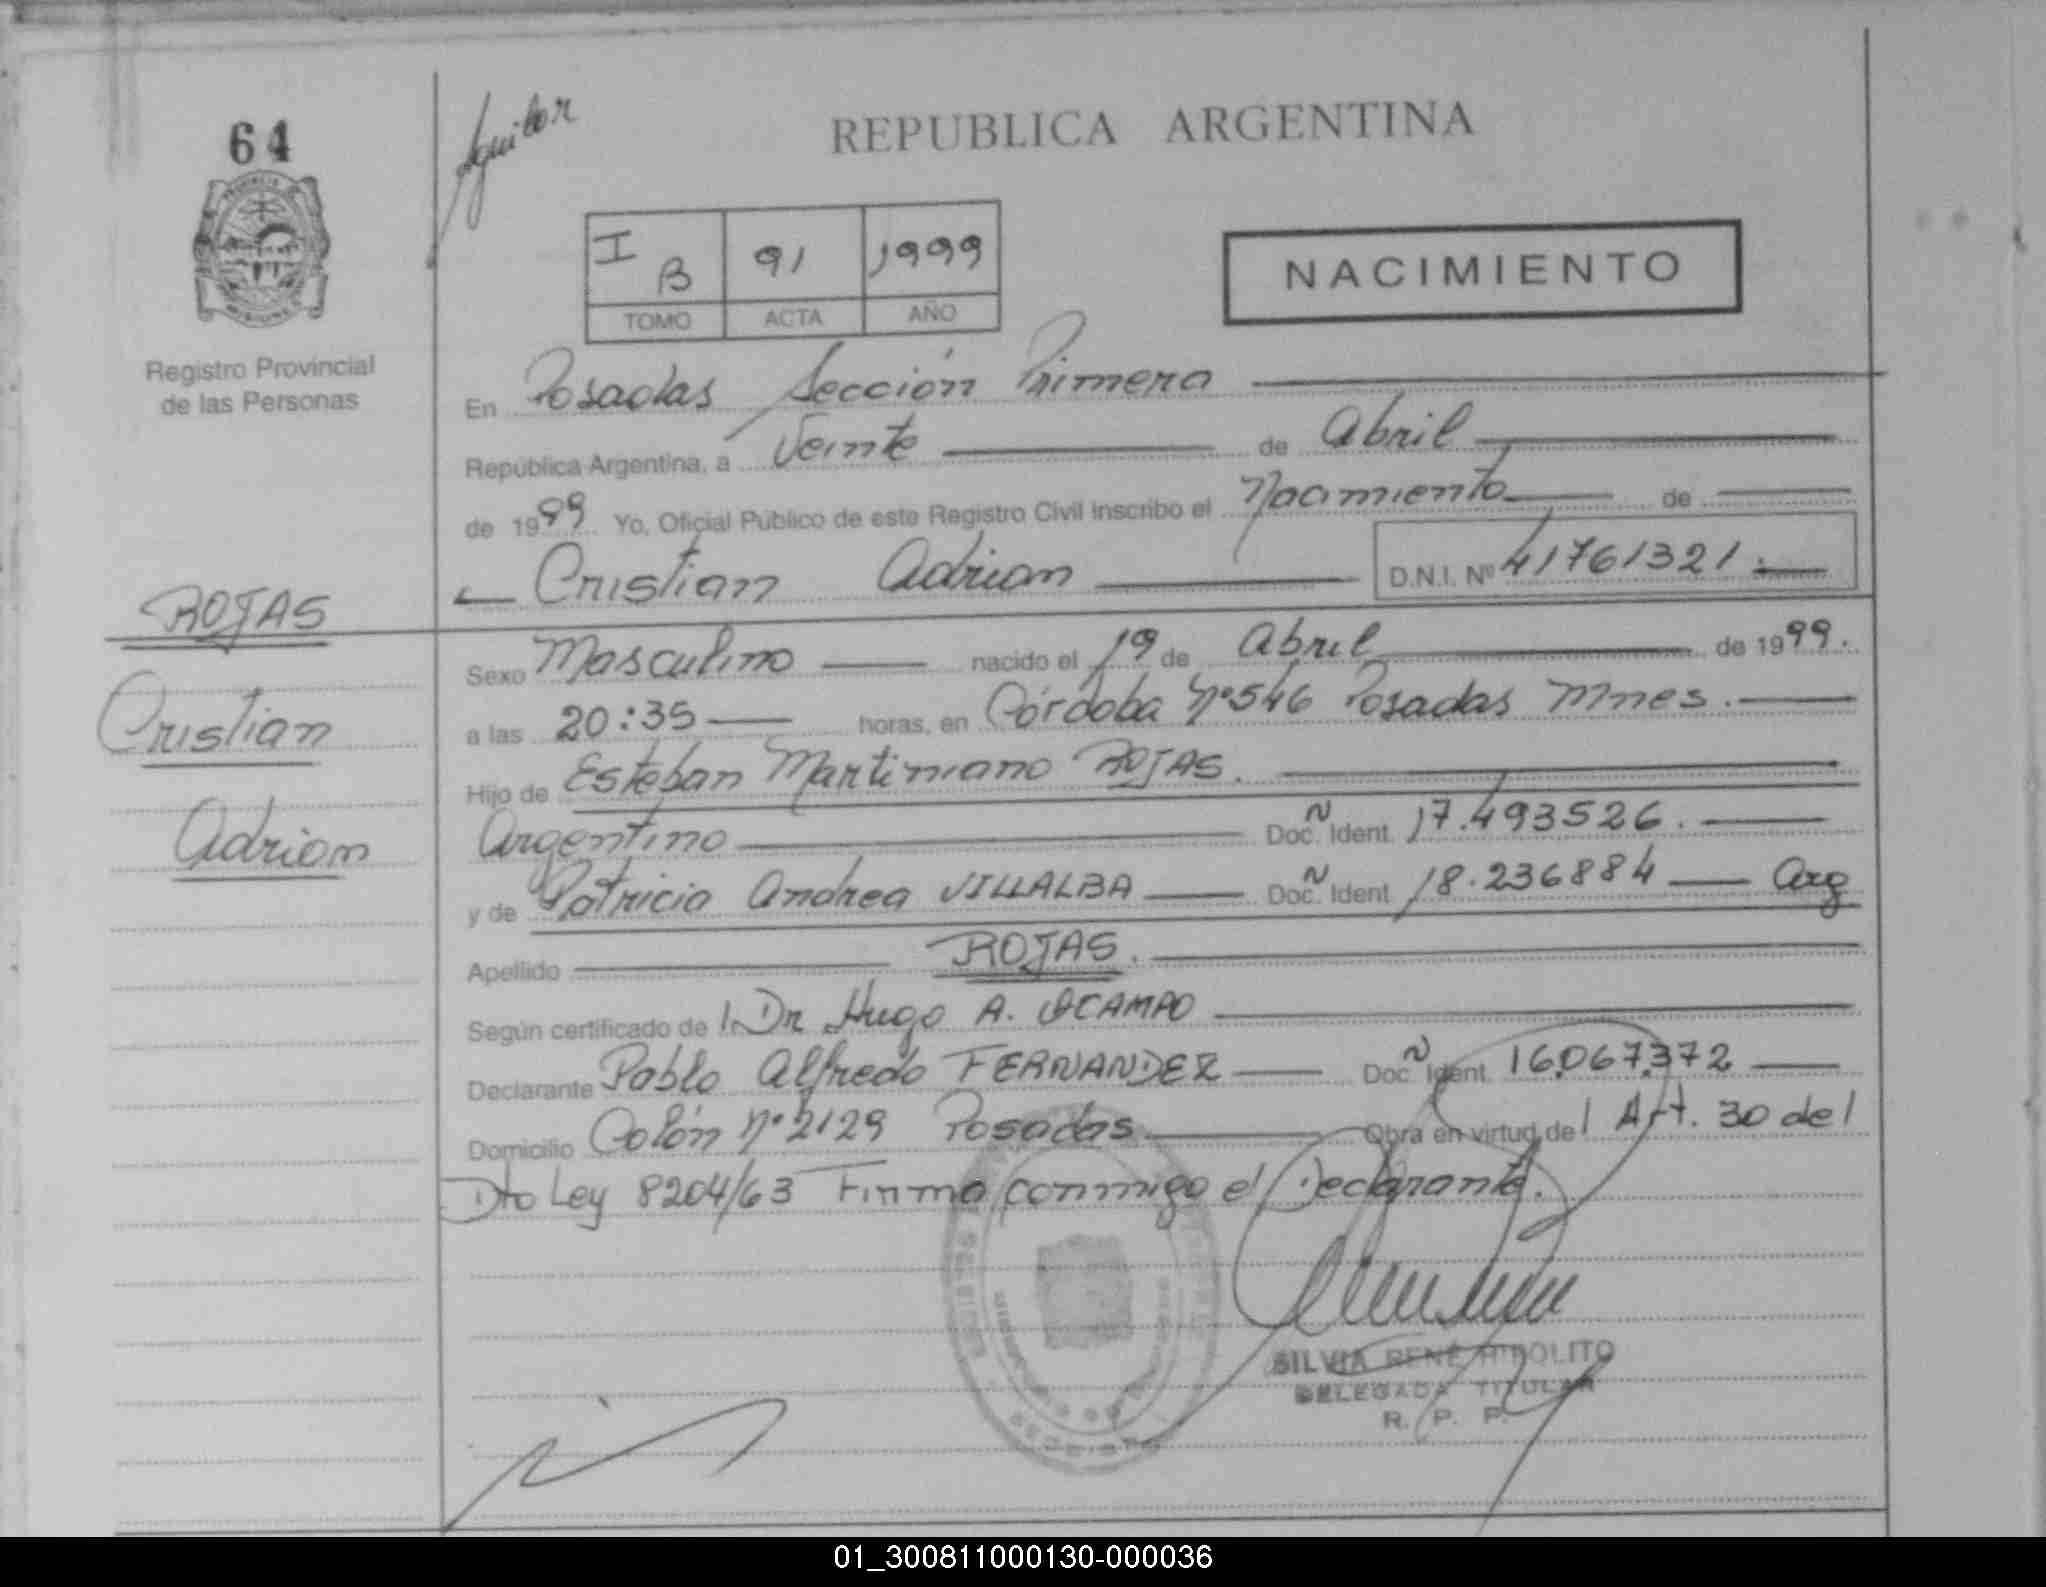 64
Aguilar
REPUBLICA ARGENTINA
I B 91 1999
TOMO ACTA AÑO
NACIMIENTO
Registro Provincial
de las Personas
En Posadas Sección Primera
República Argentina, a Veinte de Abril
de 1999 Yo, Oficial Público de este Registro Civil Inscribo el Nacimiento de
Cristian Adrian D.N.I. Nº 41761321.
ROJAS
Cristian
Adrian
Sexo Masculino nacido el 19 de Abril de 1999.
a las 20:35 horas, en Córdoba Nº 546 Posadas Mnes.
Hijo de Esteban Martiniano ROJAS.
Argentino Doc. Ident. 17.493526.
y de Patricia Andrea VILLALBA Doc. Ident. 18.236884 Arg
Apellido ROJAS.
Según certificado de l Dr Hugo A. OCAMPO
Declarante Pablo Alfredo FERNANDEZ Doc. Ident. 16.067.372
Domicilio Colón Nº 2129 Posadas Obra en virtud de l Art. 30 del
Dto Ley 8204/63 Firma conmigo el Declarante.
SILVIA RENÉ HIPOLITO
DELEGADA TITULAR
R. P. P.
01_300811000130-000036